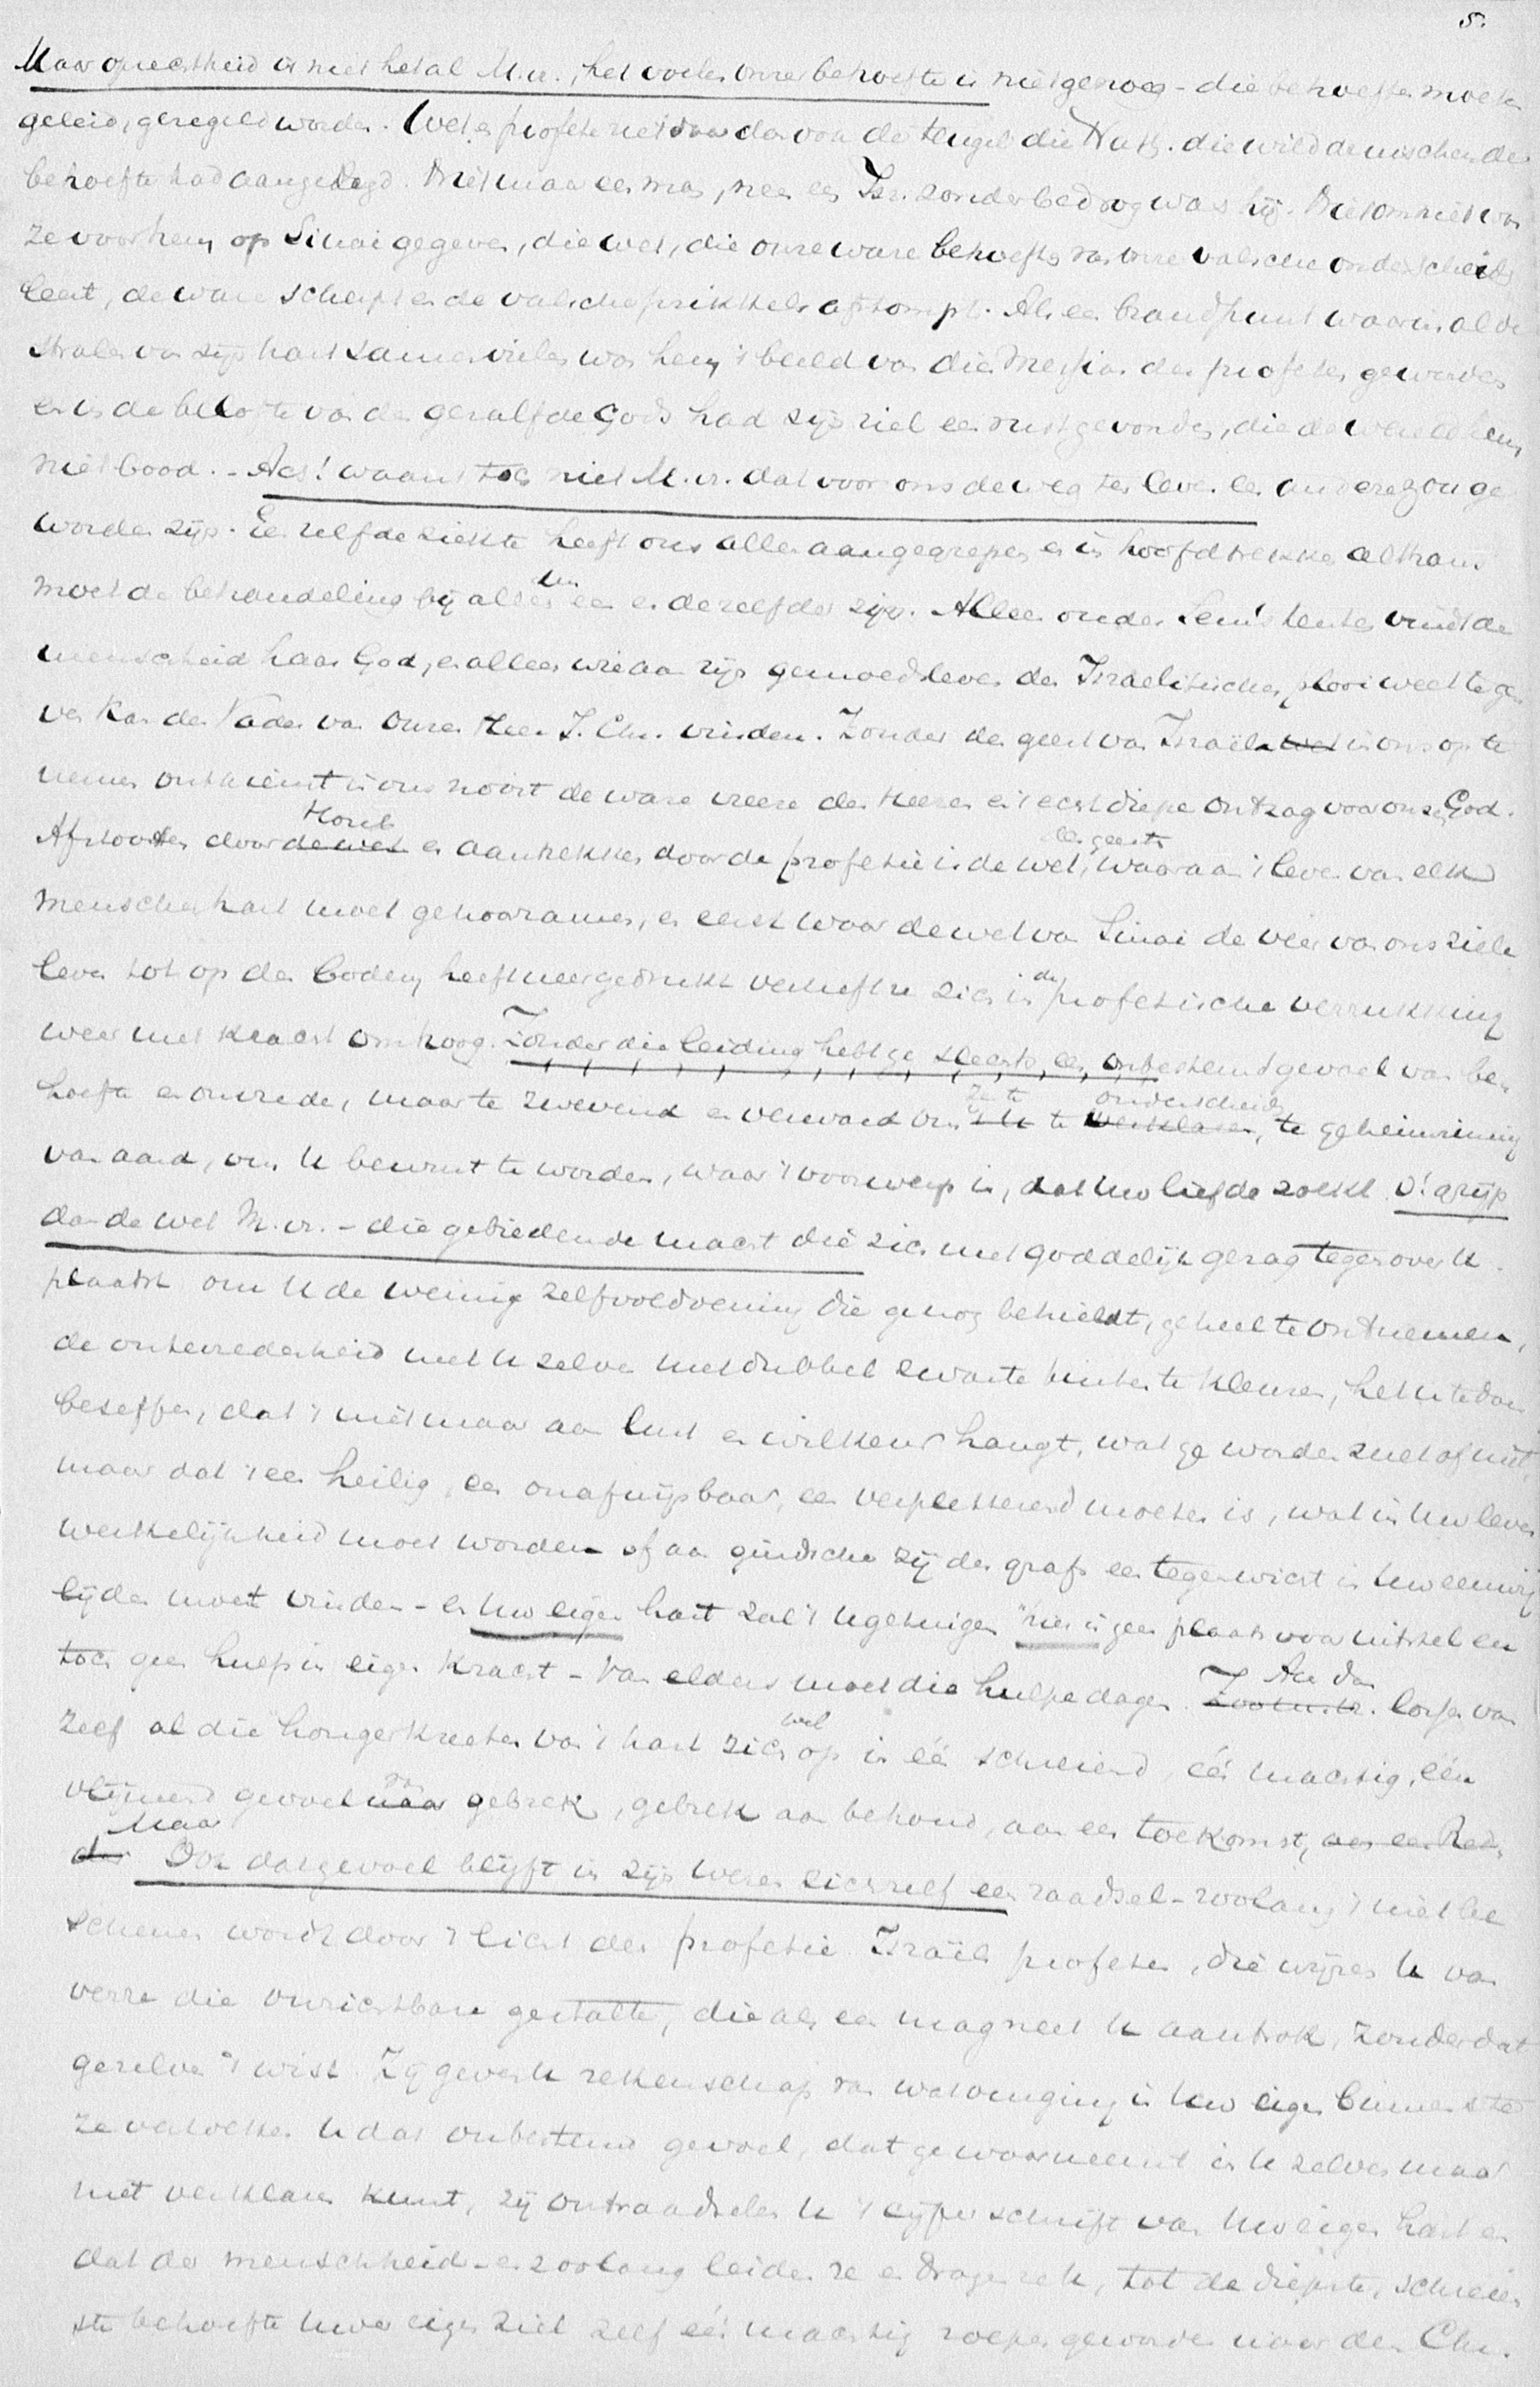 5.
Maar oprechtheid is niet het al M.v., het voelen onzer behoefte is niet genoeg - die behoeften moeten
geleid, geregeld worden. Wet en profetie niet daar den van de teugel die Nath. die wilde menschen der
behoefte had aangelegd. Niet maar een man, neen een Isr. zonder bedrog was hij. Niet om niet was
ze voor hem op Sinai gegeven, die wet, die onze ware behoefte van onze valsche onderscheiden
leert, de ware scherpt en de valsche prikkels afstompt. Als een brandpunt waarin al de
stralen van zijn hart samenvielen was hem 't beeld van die Messias der profeten geworden
en in de belofte van den gezalfde Gods had zijn ziel een rust gevonden, die de wereld hem
niet bood. - Ach! waant toch niet M.v. dat voor ons de weg ten leven een andere zou ge
worden zijn. Eenzelfde ziekte heeft ons allen aangegrepen en in hoofdtrekken althans
moet de behandeling bij allen een en dezelfde zijn. Alleen onder Sem's tenten vindt de
menschheid haar God, en alleen wie aan zijn gemoedsleven den Israelitischen plooi weet te ge
ven kan den Vader van onzen Heer J. Chr. vinden. Zonder den geest van Israëls wet in ons op te
nemen ontkiemt in ons nooit de ware vreeze des Heeren en 't echt diepe ontzag voor onzen God.
Afstooten door de wet Horeb en aantrekken door de profetie is de wet des geestes, waaraan 't leven van elk
menschenhart moet gehoorzamen, en eerst waar de wet van Sinai de veer van ons ziele
leven tot op den bodem heeft neergedrukt verheft ze zich in de profetische verrukking
weer met kracht omhoog. Zonder die leiding hebt ge slechts een onbestemd gevoel van be
hoefte en onvrede, maar te zwevend en verward om 't U te verklaren ze te onderscheiden, te geheimzinnig
van aard, om U bewust te worden, waar 't voorwerp is, dat Uw liefde zoekt. O! grijp
dan de wet M.v. - die gebiedende macht die zich met goddelijk gezag tegenover U
plaatst om U de weinig zelfvoldoening die ge nog behieldt, geheel te ontnemen,
de ontevredenheid met U zelve met dubbel zwarte tinten te kleuren, het U te doen
beseffen, dat 't niet maar aan lust en willekeur hangt, wat ge worden zult of niet,
maar dat 't een heilig, een onafwijsbaar, een verpletterend moeten is, wat in Uw leven
werkelijkheid moet worden of aan gindsche zij des grafs een tegenwicht in Uw eeuwig
lijden moet vinden - en Uw eigen hart zal 't U getuigen "hier is geen plaats voor uitstel en
toch geen hulp in eigen kracht - Van elders moet die hulpe dagen. Zoo Ach dan lossen van
zelf al die hongerkreeten van 't hart zich wel op in één schreiend, één machtig, één
vlijmend gevoel van gebrek, gebrek aan behoud, aan een toekomst, aan een Red
der Maar Ook dat gevoel blijft in zijn wezen zichzelf een raadsel - zoolang 't niet be
schenen wordt door 't licht der profetie. Israëls profeten, die wijzen U van
verre die onzichtbare gestalte, die als een magneet U aantrok, zonder dat
ge zelve 't wist. Zij geven U rekenschap van wat omging in Uw eigen binnenste
ze vertolken U dat onbestemd gevoel, dat ge waarneemt in U zelven maar
niet verklaren kunt, zij ontraadselen U 't cijferschrift van Uw eigen hart en
dat der menschheid - en zoolang leiden ze en dragen ze U, tot de diepste, schreien
ste behoefte Uwer eigen ziel zelf één machtig roepen geworden naar den Chr.